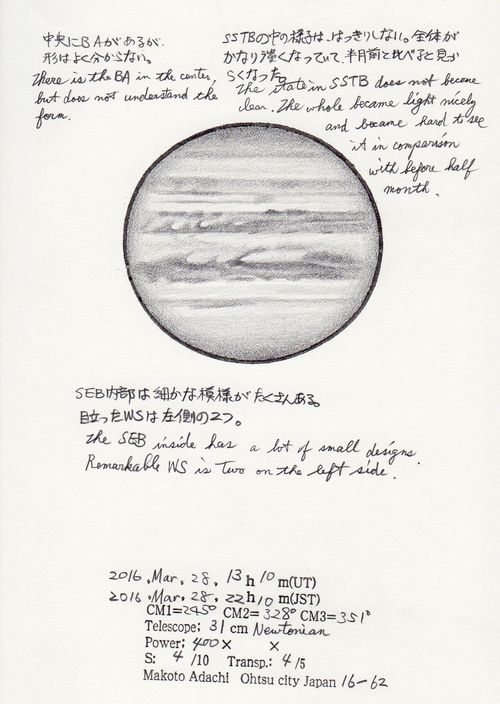 中央にBAがあるが、
形はよく分からない。
There is the BA in the center,
but does not understand the
form.
SSTBの中の様子は、はっきりしない。全体が
かなり淡くなっていて、半月前と比べると見づ
らくなった。
The state in SSTB does not become
clear. The whole became light nicely
and became hard to see
it in comparison
with before half
month.
SEB内部は細かな模様がたくさんある。
目立ったWSは左側の2つ。
The SEB inside has a lot of small designs.
Remarkable WS is Two on the left side.
2016.Mar. 28. 13 h 10 m(UT)
2016.Mar. 28. 22 h 10 m(JST)
CM1=245° CM2=328° CM3=351°
Telescope: 31 cm Newtonian
Power: 400× ×
S: 4 /10 Transp.: 4 /5
Makoto Adachi Ohtsu city Japan 16-62